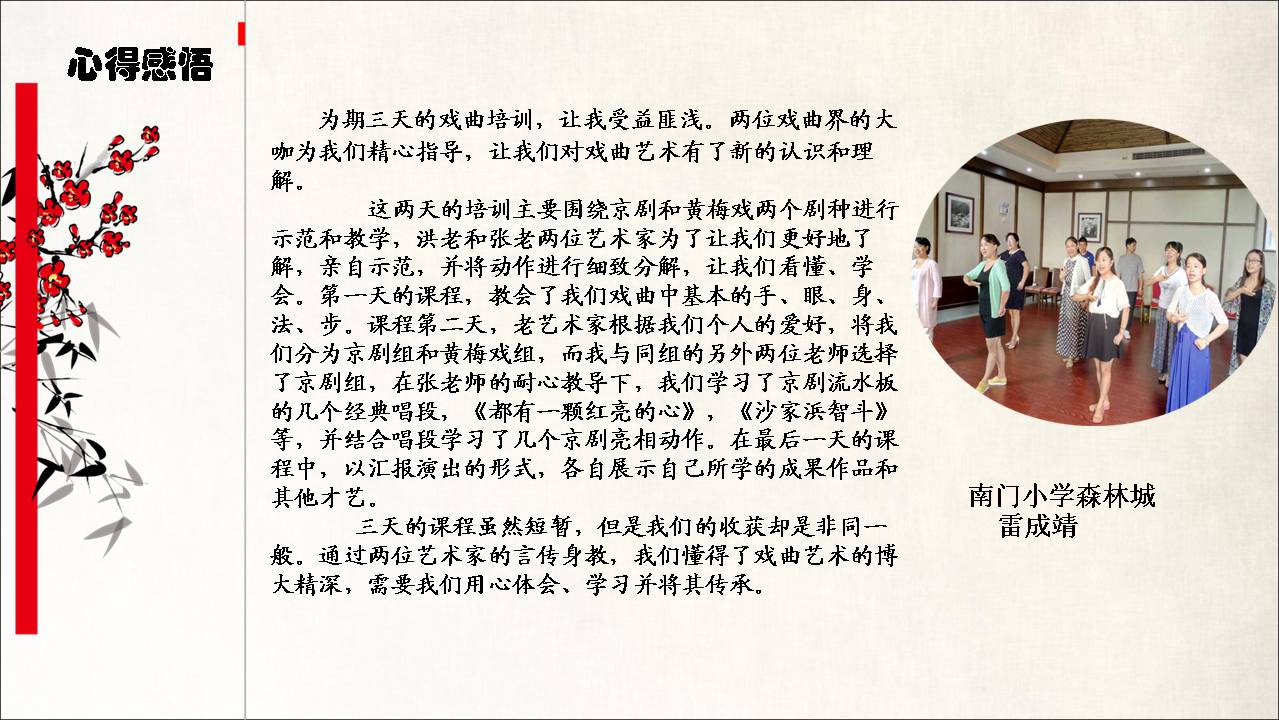 心得感悟
为期三天的戏曲培训，让我受益匪浅。两位戏曲界的大
咖为我们精心指导，让我们对戏曲艺术有了新的认识和理
解。
这两天的培训主要围绕京剧和黄梅戏两个剧种进行
示范和教学，洪老和张老两位艺术家为了让我们更好地了
解，亲自示范，并将动作进行细致分解，让我们看懂、学
会。第一天的课程，教会了我们戏曲中基本的手、眼、身、
法、步。课程第二天，老艺术家根据我们个人的爱好，将我
们分为京剧组和黄梅戏组，而我与同组的另外两位老师选择
了京剧组，在张老师的耐心教导下，我们学习了京剧流水板
的几个经典唱段，《都有一颗红亮的心》，《沙家浜智斗》
等，并结合唱段学习了几个京剧亮相动作。在最后一天的课
程中，以汇报演出的形式，各自展示自己所学的成果作品和
其他才艺。
三天的课程虽然短暂，但是我们的收获却是非同一
般。通过两位艺术家的言传身教，我们懂得了戏曲艺术的博
大精深，需要我们用心体会、学习并将其传承。
南门小学森林城
雷成靖